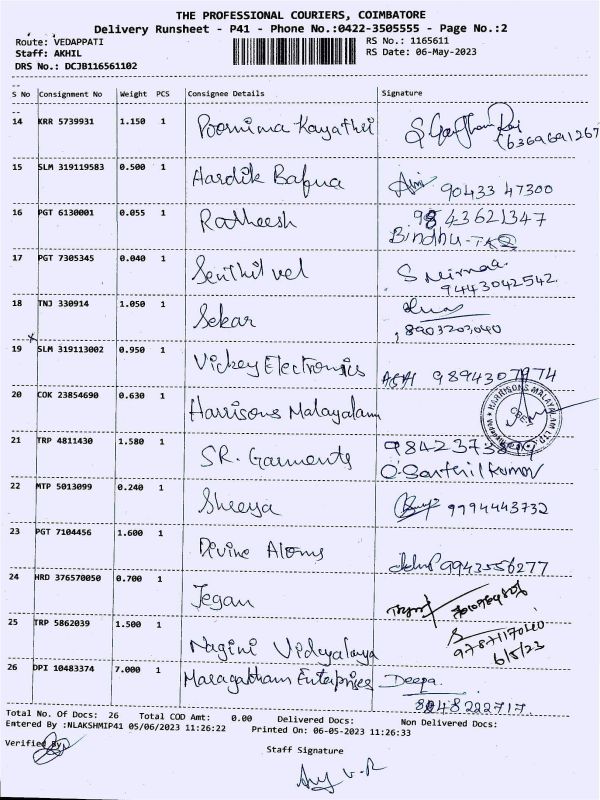 THE PROFESSIONAL COURIERS, COIMBATORE
Delivery Runsheet - P41 - Phone No.:0422-3505555 - Page No.:2
Route: VEDAPPATI
Staff: AKHIL
DRS No.: DCJB116561102
RS No.: 1165611
RS Date: 06-May-2023
S No Consignment No Weight PCS Consignee Details Signature
14 KRR 5739931 1.150 1 Poornima Gayathri
15 SLM 319119583 0.500 1 Hardik Bafna 90433 47300
16 PGT 6130001 0.055 1 Ratheesh 9843621347
Bindhu
17 PGT 7305345 0.040 1 Senthil vel S Nirmala
9443042542
18 TNJ 330914 1.050 1 Sekar
8903203040
19 SLM 319113002 0.950 1 Vickey Electronics 9894307974
20 COK 23854690 0.630 1 Harrisons Malayalam
HARRISONS MALAYALAM LTD
21 TRP 4811430 1.580 1 SR. Garments
O. Santhil kumar
22 MTP 5013099 0.240 1 Shreya 9994443732
23 PGT 7104456 1.600 1 Devine Atoms 9943556277
24 HRD 376570050 0.700 1 Jegan
25 TRP 5862039 1.500 1 Nagini Vidyalaya
6/5/23
26 DPI 10483374 7.000 1 Maragatham Enterprises Deepa.
Total No. Of Docs: 26 Total COD Amt: 0.00 Delivered Docs: Non Delivered Docs:
Entered By :NLAKSHMIP41 05/06/2023 11:26:22 Printed On: 06-05-2023 11:26:33
Verified By
Staff Signature